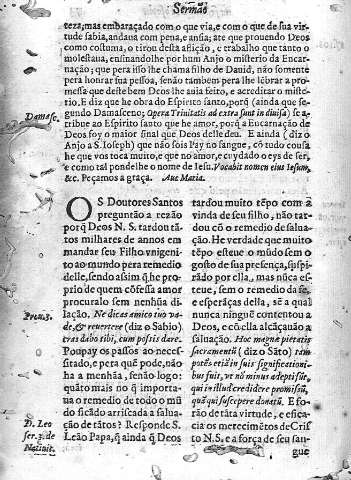 Sermão
teza, mas embaraçado com o que via, e com o que de sua vir-
tude sabia, andaua com pena, ansia; ate que prouendo Deos
como costuma, o tirou desta aflição, e trabalho que tanto o
molestaua, ensinandolhe por hum Anjo o misterio da Encar-
nação; que pera isso lhe chama filho de Dauid, não somente
pera honrar sua pessoa, senão tambem pera lhe lẽbrar a pro-
messa que deste bem Deos lhe auia feito, e acreditar o miste-
rio. E diz que he obra do Espirito santo, porq̃ (ainda que se-
Damasc.
gundo Damasceno; Opera Trinitatis ad extra sunt indiuisa) se a-
tribue ao Espirito santo que he amor, porq̃ a Encarnação de
Deos foy o maior sinal que Deos delle deu. E ainda (diz o
Anjo a S. Ioseph) que não sois Pay no sangue, cõ tudo cousa
he que vos toca muito, e que no amor, e cuydado o eys de ser,
e como tal pondelhe o nome de Iesu. Vocabit nomen eius Iesum,
&c. Peçamos a graça. Aue Maria.
OS Doutores Santos
preguntão a rezão
porq̃ Deos N. S. tardou tã
tos milhares de annos em
mandar seu Filho vnigeni-
to ao mundo pera remedio
delle, sendo assim q̃ he pro-
prio de quem cõfessa amor
procuralo sem nenhũa di-
Prou. 3.
lação, Ne dicas amico tuo va-
de, & reuertere (diz o Sabio)
cras dabo tibi, cum possis dare.
Poupay os passos ao neces-
sitado, e pera quẽ pode, não
ha a menhãa, senão logo:
quãto mais no q̃ importa-
ua o remedio de todo o mũ
do ficãdo arriscada a salua-
D. Leo
ser. 3. de
Natiuit.
ção de tãtos? Responde S.
Leão Papa, q̃ ainda q̃ Deos
tardou muito tẽpo com a
vinda de seu filho, não tar-
dou cõ o remedio de salua-
ção. He verdade que muito
tẽpo esteue o mũdo sem o
gosto de sua presença, suspi-
rado por ella, mas nũca es-
teue, sem o remedio da fe,
e esperãças della, sẽ a qual
nunca ninguẽ contentou a
Deos, e cõ ella alcãçauão a
saluação. Hoc magnæ pietatis
sacramentũ (diz o Sãto) tam
potẽs etiã in suis significationi-
bus fuit, vt nõ minus adepti sũt,
qui in illud credidere promissũ,
quã qui suscepere donatũ. E fo-
rão de tãta virtude, e efica-
cia os merecimẽtos de Cris-
to N. S. e a força de seu san-
gue